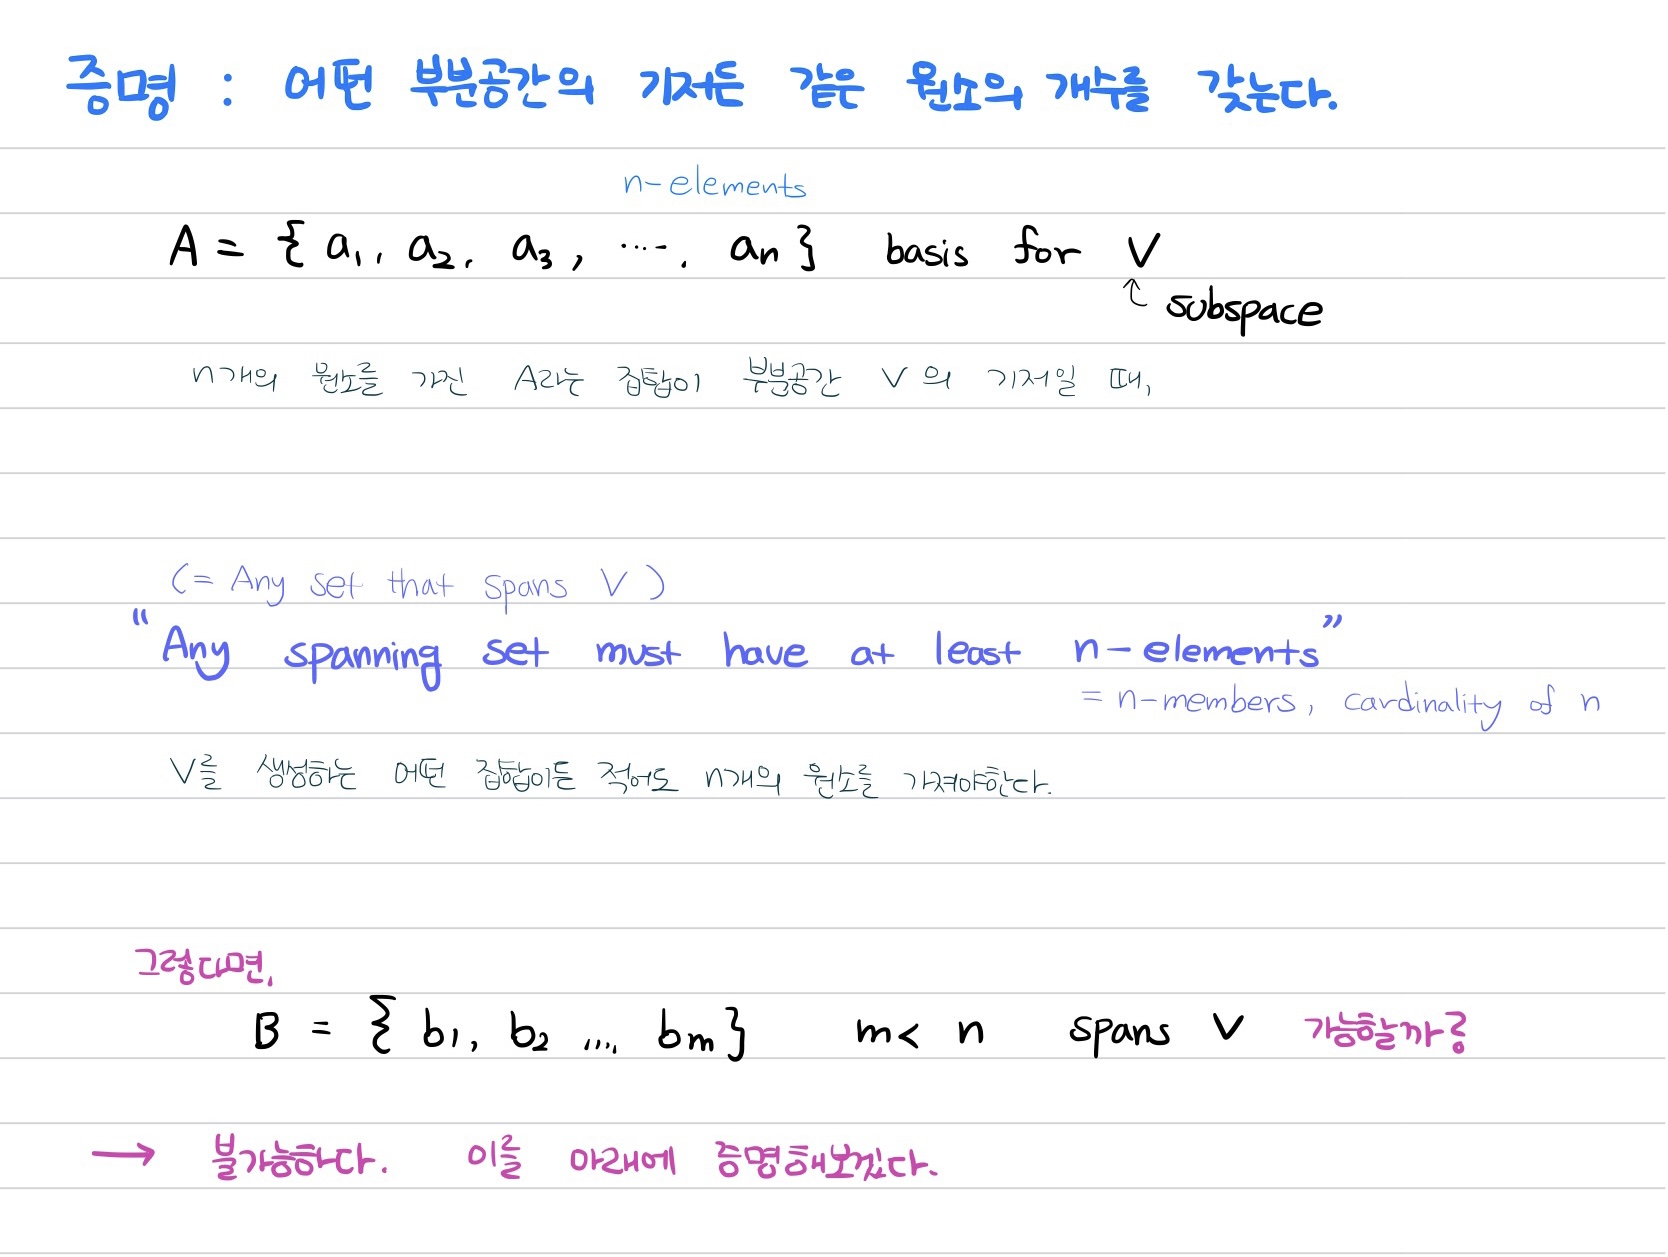 증명 : 어떤 부분공간의 기저든 같은 원소의 개수를 갖는다.
n-elements
A = { a₁, a₂, a₃, ...., aₙ } basis for V
↑ subspace
n개의 원소를 가진 A라는 집합이 부분공간 V의 기저일 때,
(= Any set that spans V )
"Any spanning set must have at least n-elements"
= n-members, cardinality of n
V를 생성하는 어떤 집합이든 적어도 n개의 원소를 가져야한다.
그렇다면,
B = { b₁, b₂ ..., bₘ } m < n spans V 가능할까?
→ 불가능하다. 이를 아래에 증명해보겠다.